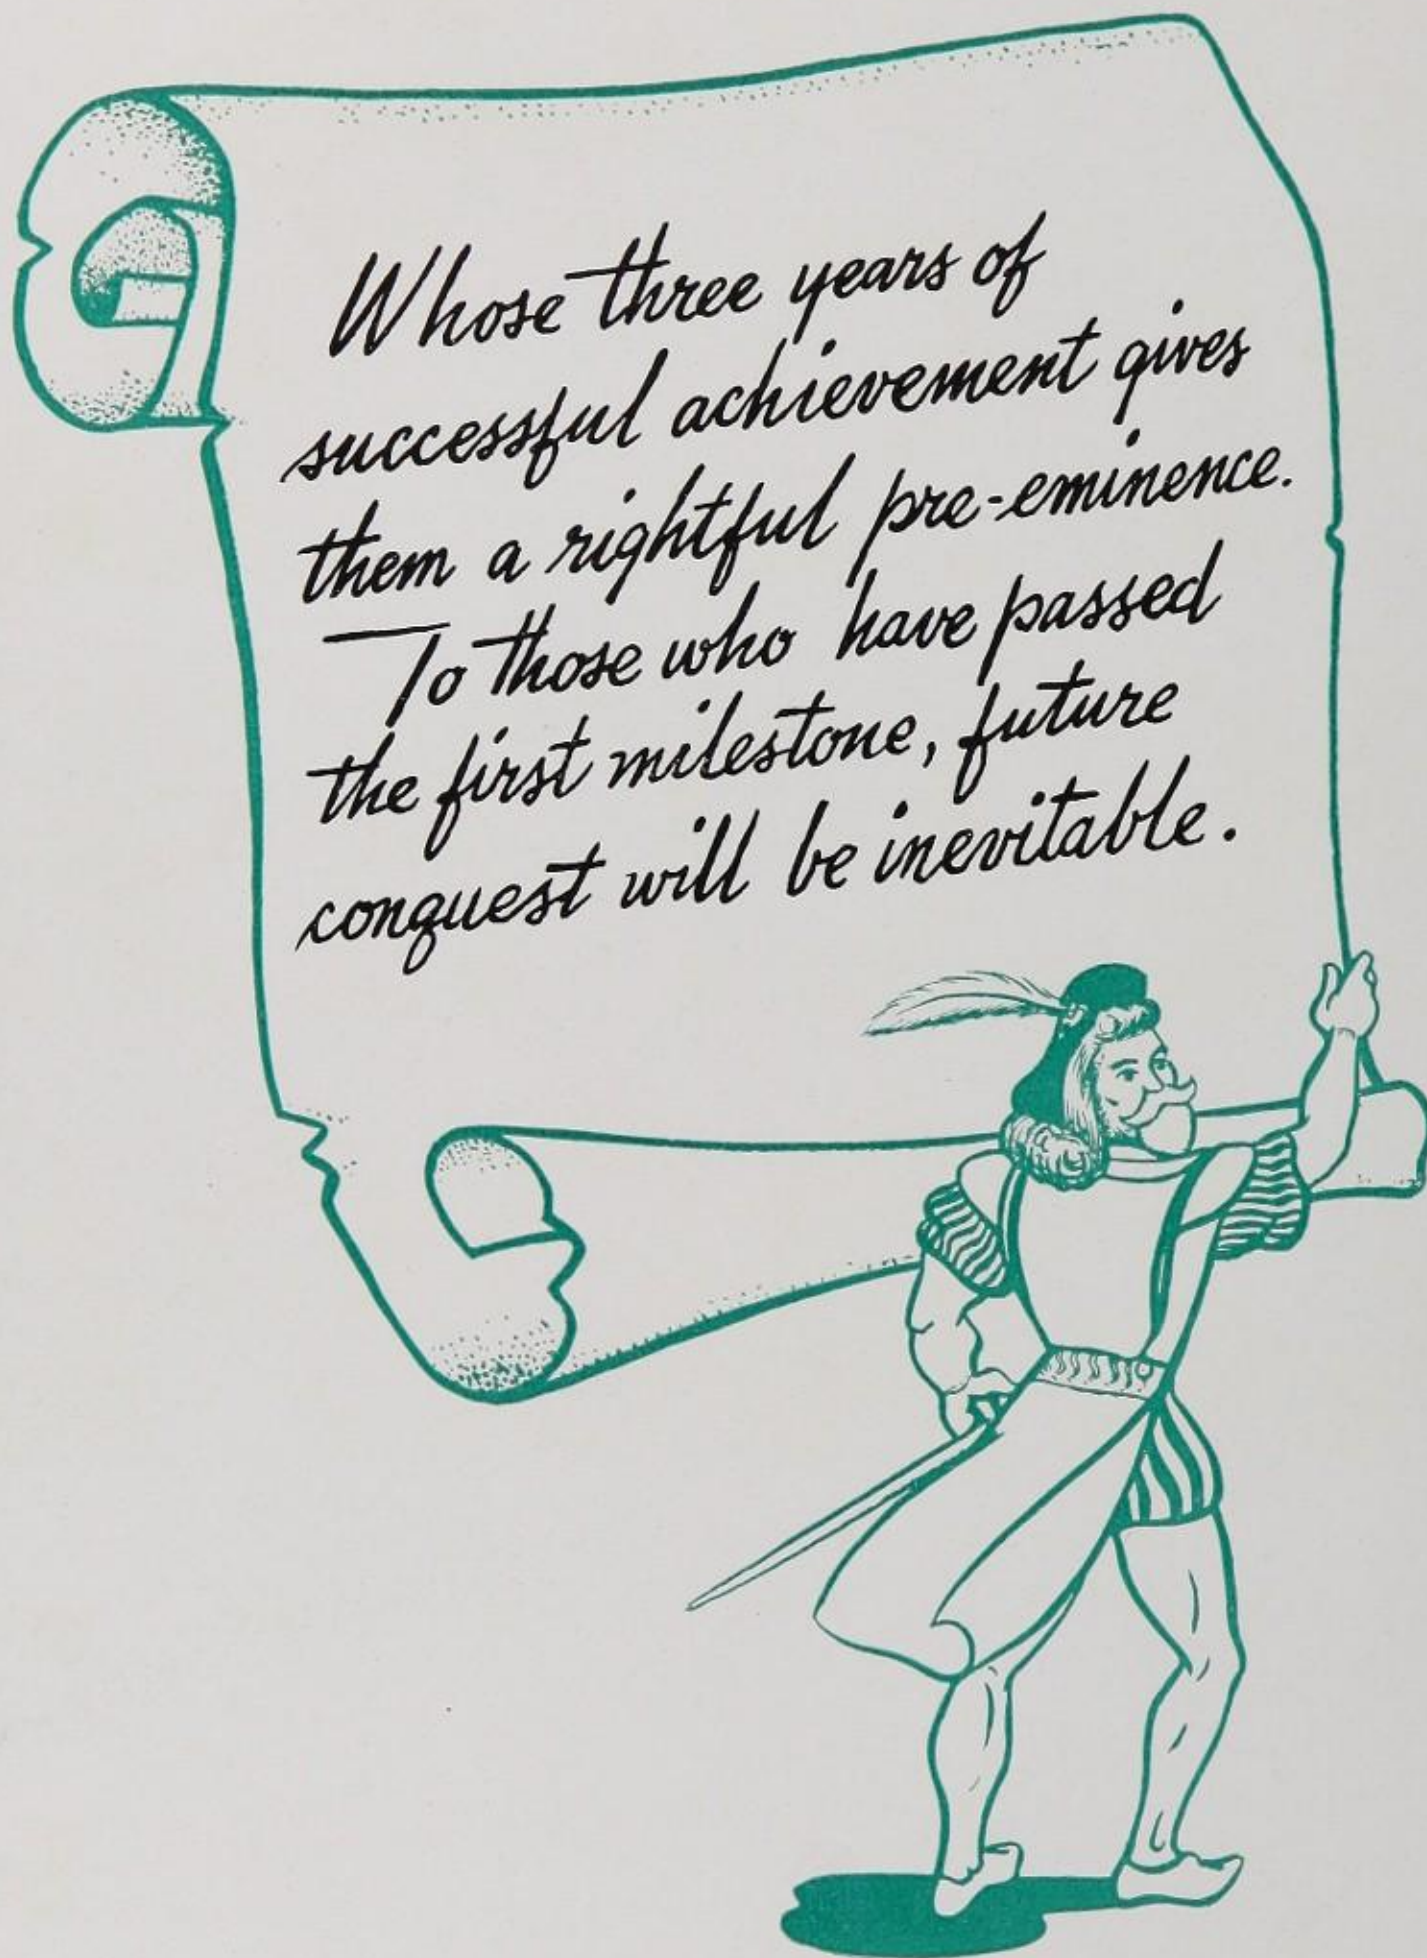 Whose three years of
successful achievement gives
them a rightful pre-eminence.
To those who have passed
the first milestone, future
conquest will be inevitable.